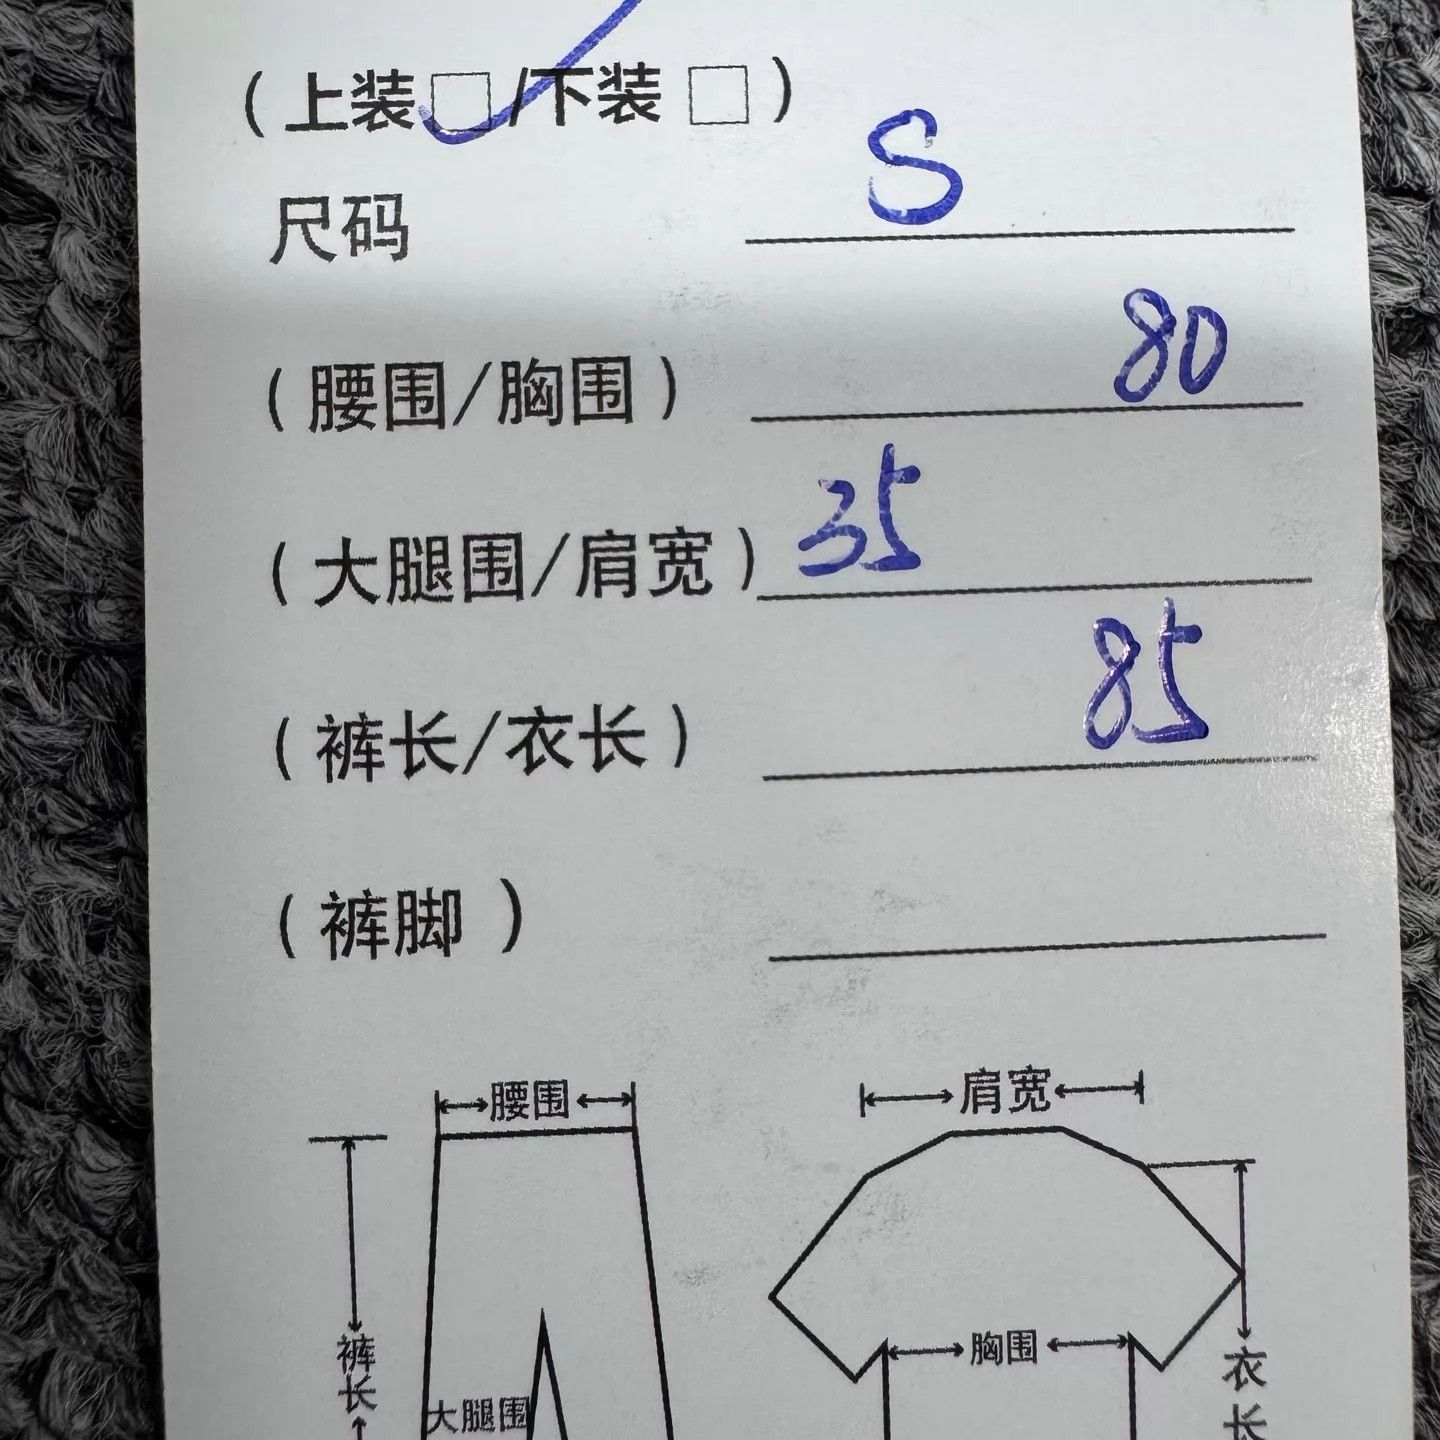 （上装□/下装□）
尺码 S
（腰围/胸围） 80
（大腿围/肩宽） 35
（裤长/衣长） 85
（裤脚）
腰围
肩宽
裤长
大腿围
胸围
衣长